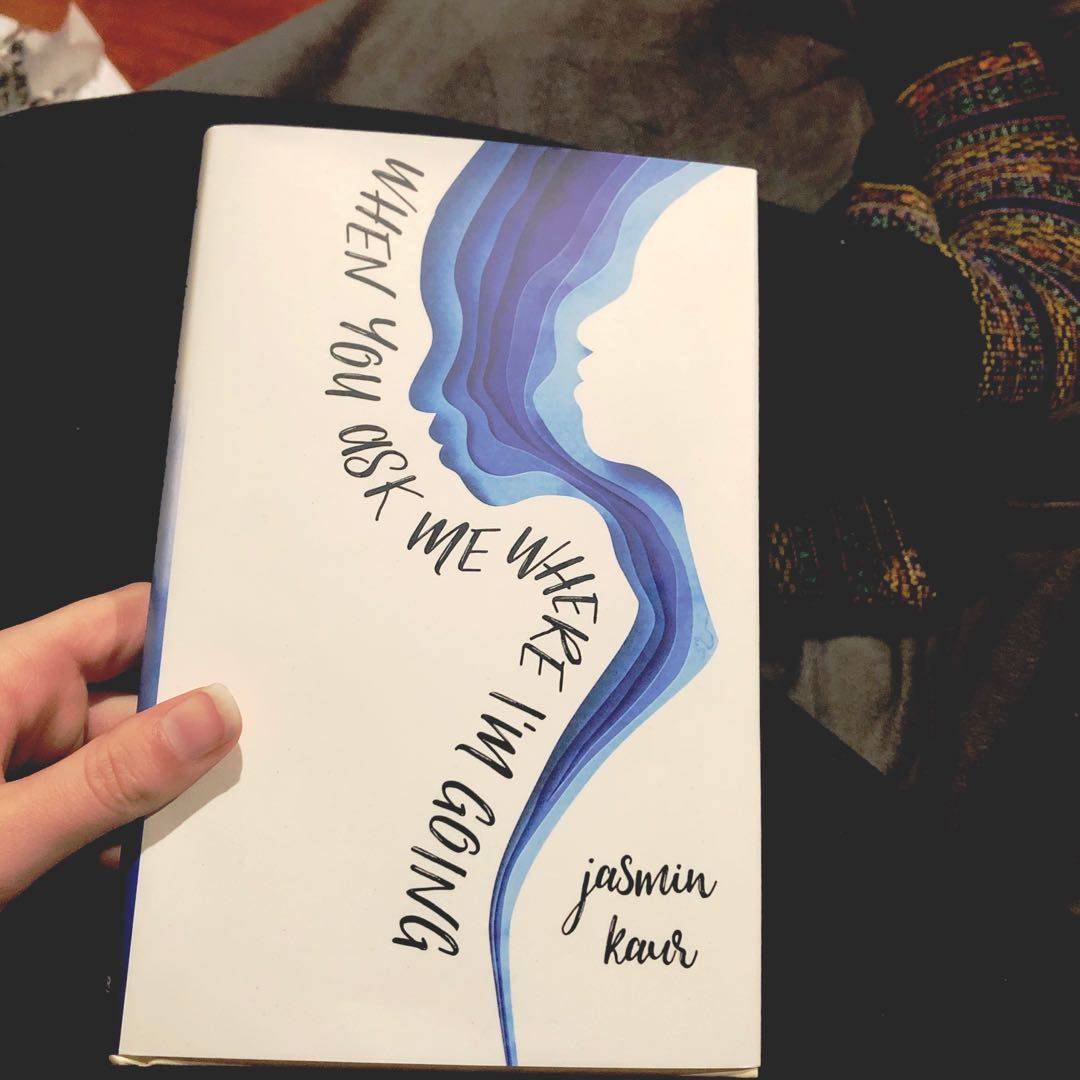 WHEN YOU ASK ME WHERE I'M GOING
jasmin
kaur